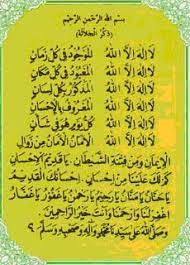 بسم الله الرحمن الرحيم
(ذكر الجلالة)
لا إله إلا الله الموجود في كل زمان
لا إله إلا الله المعبود في كل مكان
لا إله إلا الله المذكور بكل لسان
لا إله إلا الله المعروف بالإحسان
لا إله إلا الله كل يوم هو في شأن
لا إله إلا الله الأمان الأمان من زوال
الإيمان ومن فتنة الشيطان يا قديم الإحسان
كم لك علينا من إحسان إحسانك القديم
يا حنان يا منان يا رحيم يا رحمن يا غفور يا غفار
اغفر لنا وارحمنا وأنت خير الراحمين
وصلى الله على سيدنا محمد وآله وصحبه وسلم ٩